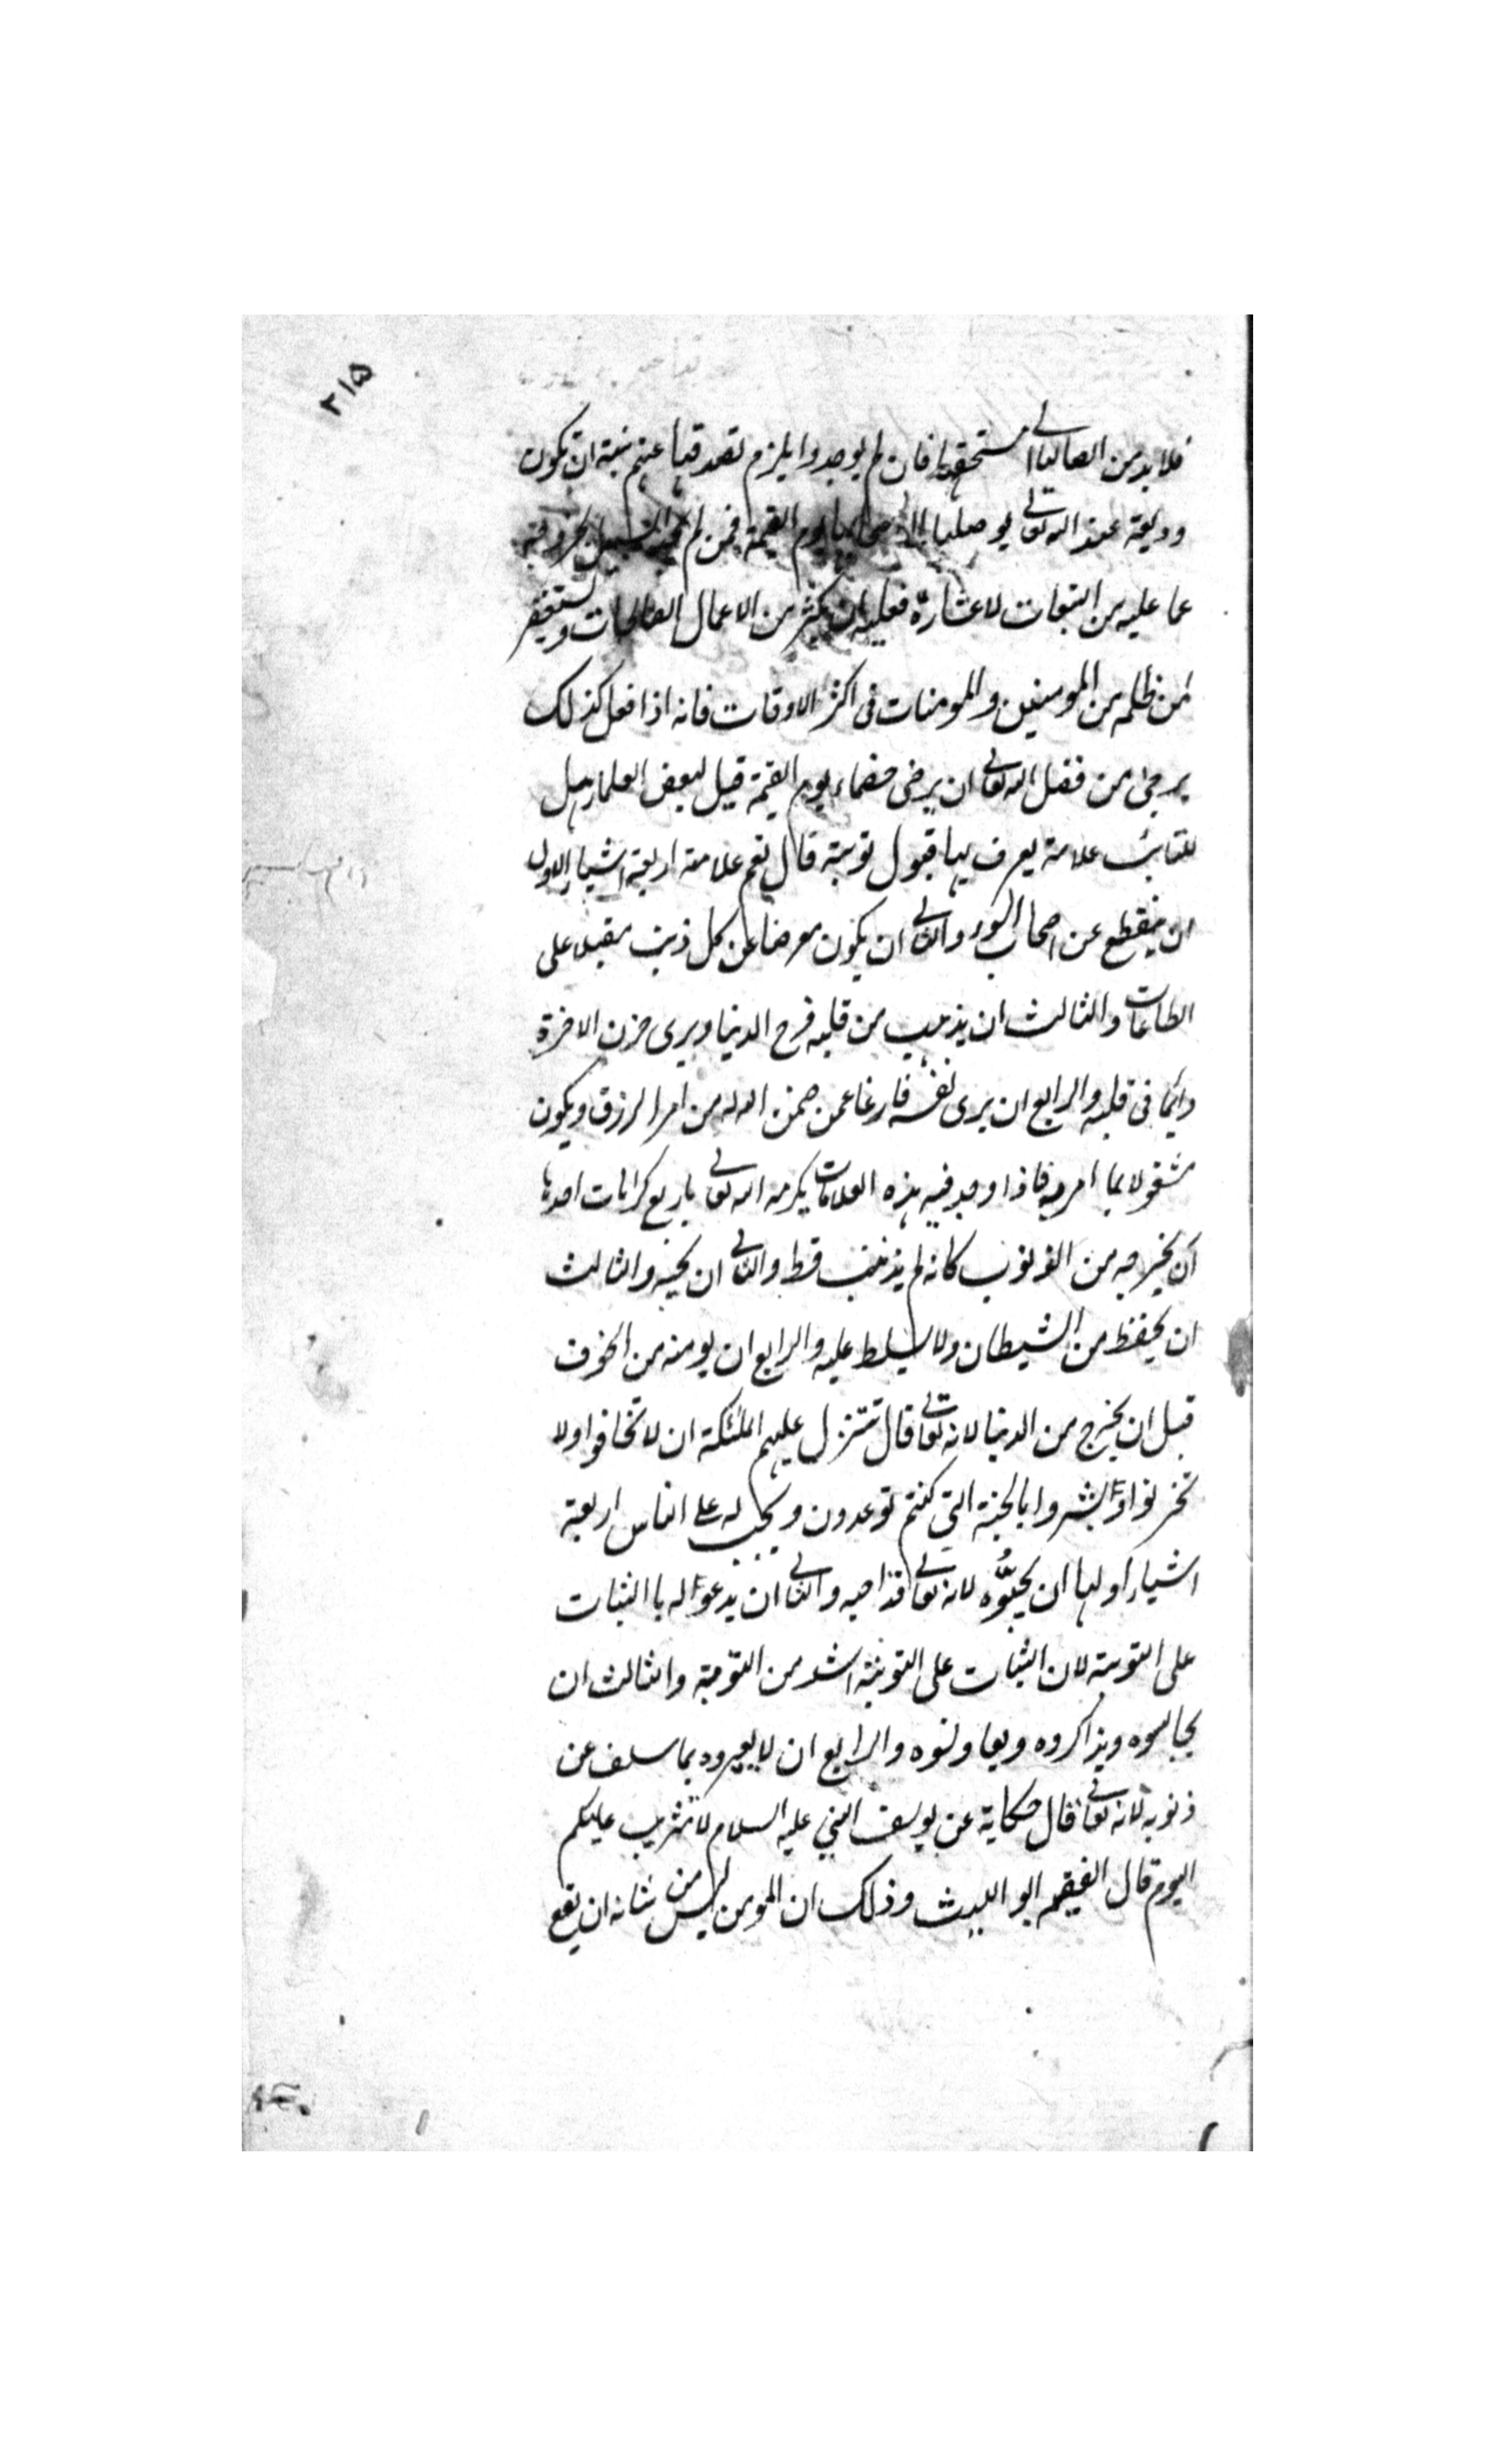 ٢١٥
فلا بد من ايصالها الى مستحقها فان لم يوجدوا يلزم تصدقها عنهم بنية ان تكون
وديعة عند الله تعالى يوصلها الى يوم القيمة فمن لم
عما عليه من التبعات لاعساره فعليه ان يكثر من الاعمال الصالحات ويستغفر
لمن ظلمه من المومنين والمومنات فى اكثر الاوقات فانه اذا فعل كذلك
يرجى من فضل الله تعالى ان يرضى خصماءه يوم القيمة قيل لبعض العلماء هل
للتائب علامة يعرف بها قبول توبته قال نعم علامته اربعة اشياء الاول
ان ينقطع عن اصحاب السوء والثانى ان يكون معرضا عن كل ذنب مقبلا على
الطاعات والثالث ان يذهب من قلبه فرح الدنيا ويرى حزن الاخرة
دائما فى قلبه والرابع ان يرى نفسه فارغا عمن ضمن الله له من امر الرزق ويكون
مشغولا بما امر به فاذا وجد فيه هذه العلامات يكرمه الله تعالى باربع كرامات احدها
ان يخرجه من الذنوب كانه لم يذنب قط والثانى ان يحبه والثالث
ان يحفظ من الشيطان ولا يسلط عليه والرابع ان يومنه من الخوف
قبل ان يخرج من الدنيا لانه تعالى قال تتنزل عليهم الملئكة ان لا تخافوا ولا
تحزنوا وابشروا بالجنة التى كنتم توعدون ويجب له على الناس اربعة
اشياء اولها ان يحبّوه لانه تعالى قد احبه والثانى ان يدعوا له باالثبات
على التوبة لان الثبات على التوبة اشد من التوبة والثالث ان
يجالسوه ويذاكروه ويعاونوه والرابع ان لا يعيروه بما سلف عن
ذنوبه لانه تعالى قال حكاية عن يوسف النبي عليه السلام لا تثريب عليكم
اليوم قال الفقيه ابو الليث وذلك ان المومن ليس من شانه ان يقع